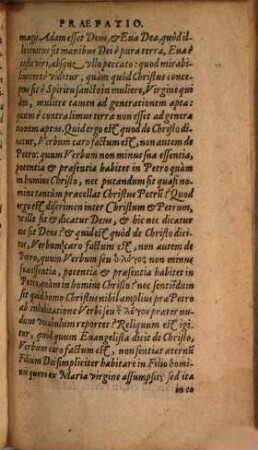 PRAEFATIO.
magis Adam esset Deus, & Eua Dea, quòd il-
le
sit manibus Dei è pura terra, Eua è
viri, absque vllo peccato: quod mirabi-
videtur, quàm quòd Christus concep-
sit è Spiritu sancto in muliere, Virgine qui-
dem, muliere tamen ad generationem apta:
quum è contra limus terra non esset ad genera-
tionem aptus. Quid ergo est quod de Christo di-
catur, Verbum caro factum est, non autem de
Petro: quum Verbum non minus sua essentia,
potentia & præsentia habitet in Petro quàm
in homine Christo, nec putandum sit quasi nomi-
ne tantùm præcellat Christus Petrũ? Quod
ergo est discrimen inter Christum & Petrum,
vt ille sit & dicatur Deus, & hic nec dicatur
nec sit Deus? & quid est quòd de Christo dici-
tur, Verbum caro factum est, non autem de
Petro, quum Verbum seu ὁ λόγος non minus
sua essentia, potentia & præsentia habitet in
Petro, quàm in homine Christo? nec sentiẽdum
sit quòd homo Christus nihil amplius præ Petro
ab inhabitatione Verbi seu τοῦ λόγου præter nu-
dum vocabulum reportet? Reliquum est igi-
tur, quòd quum Euangelista dicit de Christo,
Verbum caro factum est, non sentiat æternũ
Filium Dei simpliciter habitare in Filio homi-
nis quem ex Maria virgine assumpsit, sed ita
in eo